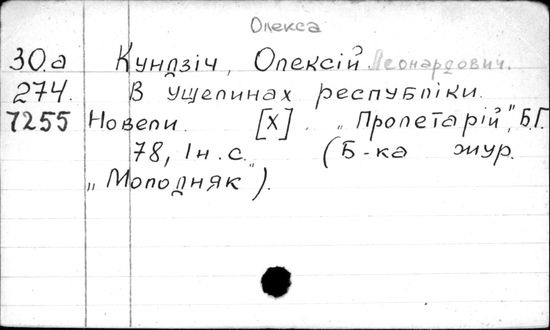 Олекса
30.а Кундзіч, Олексій Леонардович.
274. В ущелинах республіки.
7255 Новели. [Х]. „Пролетарій", Б.Г.
78, Ін. с. (Б-ка жур.
„Молодняк").